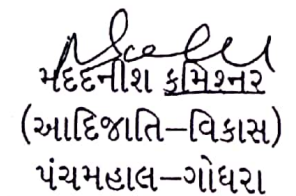 મદદનીશ કમિશ્નર
(આદિજાતિ–વિકાસ)
પંચમહાલ–ગોધરા